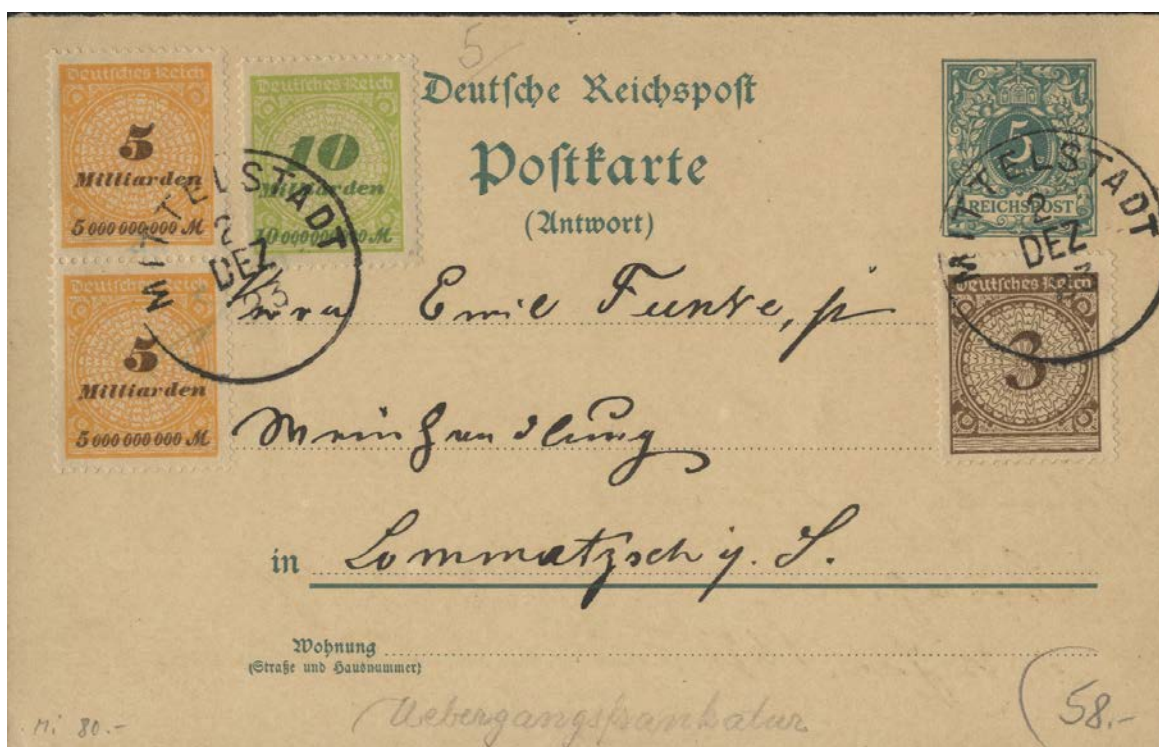 5
Deutsches Reich
5
Milliarden
5 000 000 000 M
Deutsches Reich
10
Milliarden
10 000 000 000 M
Deutsches Reich
5
Milliarden
5 000 000 000 M
MITTELSTADT
2
DEZ
Deutsche Reichspost
Postkarte
(Antwort)
5
REICHSPOST
MITTELSTADT
2
DEZ
23
Deutsches Reich
3
Emil Funke,
Weinhandlung
in Lommatzsch i. S.
Wohnung
(Straße und Hausnummer)
Mi 80.-
Uebergangsfrankatur
58.-